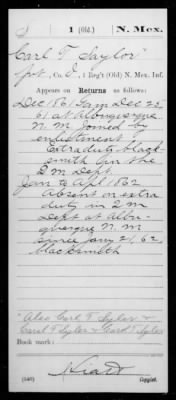 S | 1 (Old.) | N. Mex.
Carl T Saylor*
Pvt., Co. I, 1 Reg't (Old) N. Mex. Inf.
Appears on Returns as follows:
Dec 1861 Gain Dec 23
61 at Albuquerque
N. M. Joined by
enlistment
Extra duty black-
smith in the
Q M Dept
Jan to Apl 1862
Absent on extra
duty in Q M
Dept at Albu-
querque N. M
since Jany 21, 62
blacksmith
*Also Carl T Sylor &
Carel T Sylor & Card T Sylor
Book mark:
(546) Copyist.